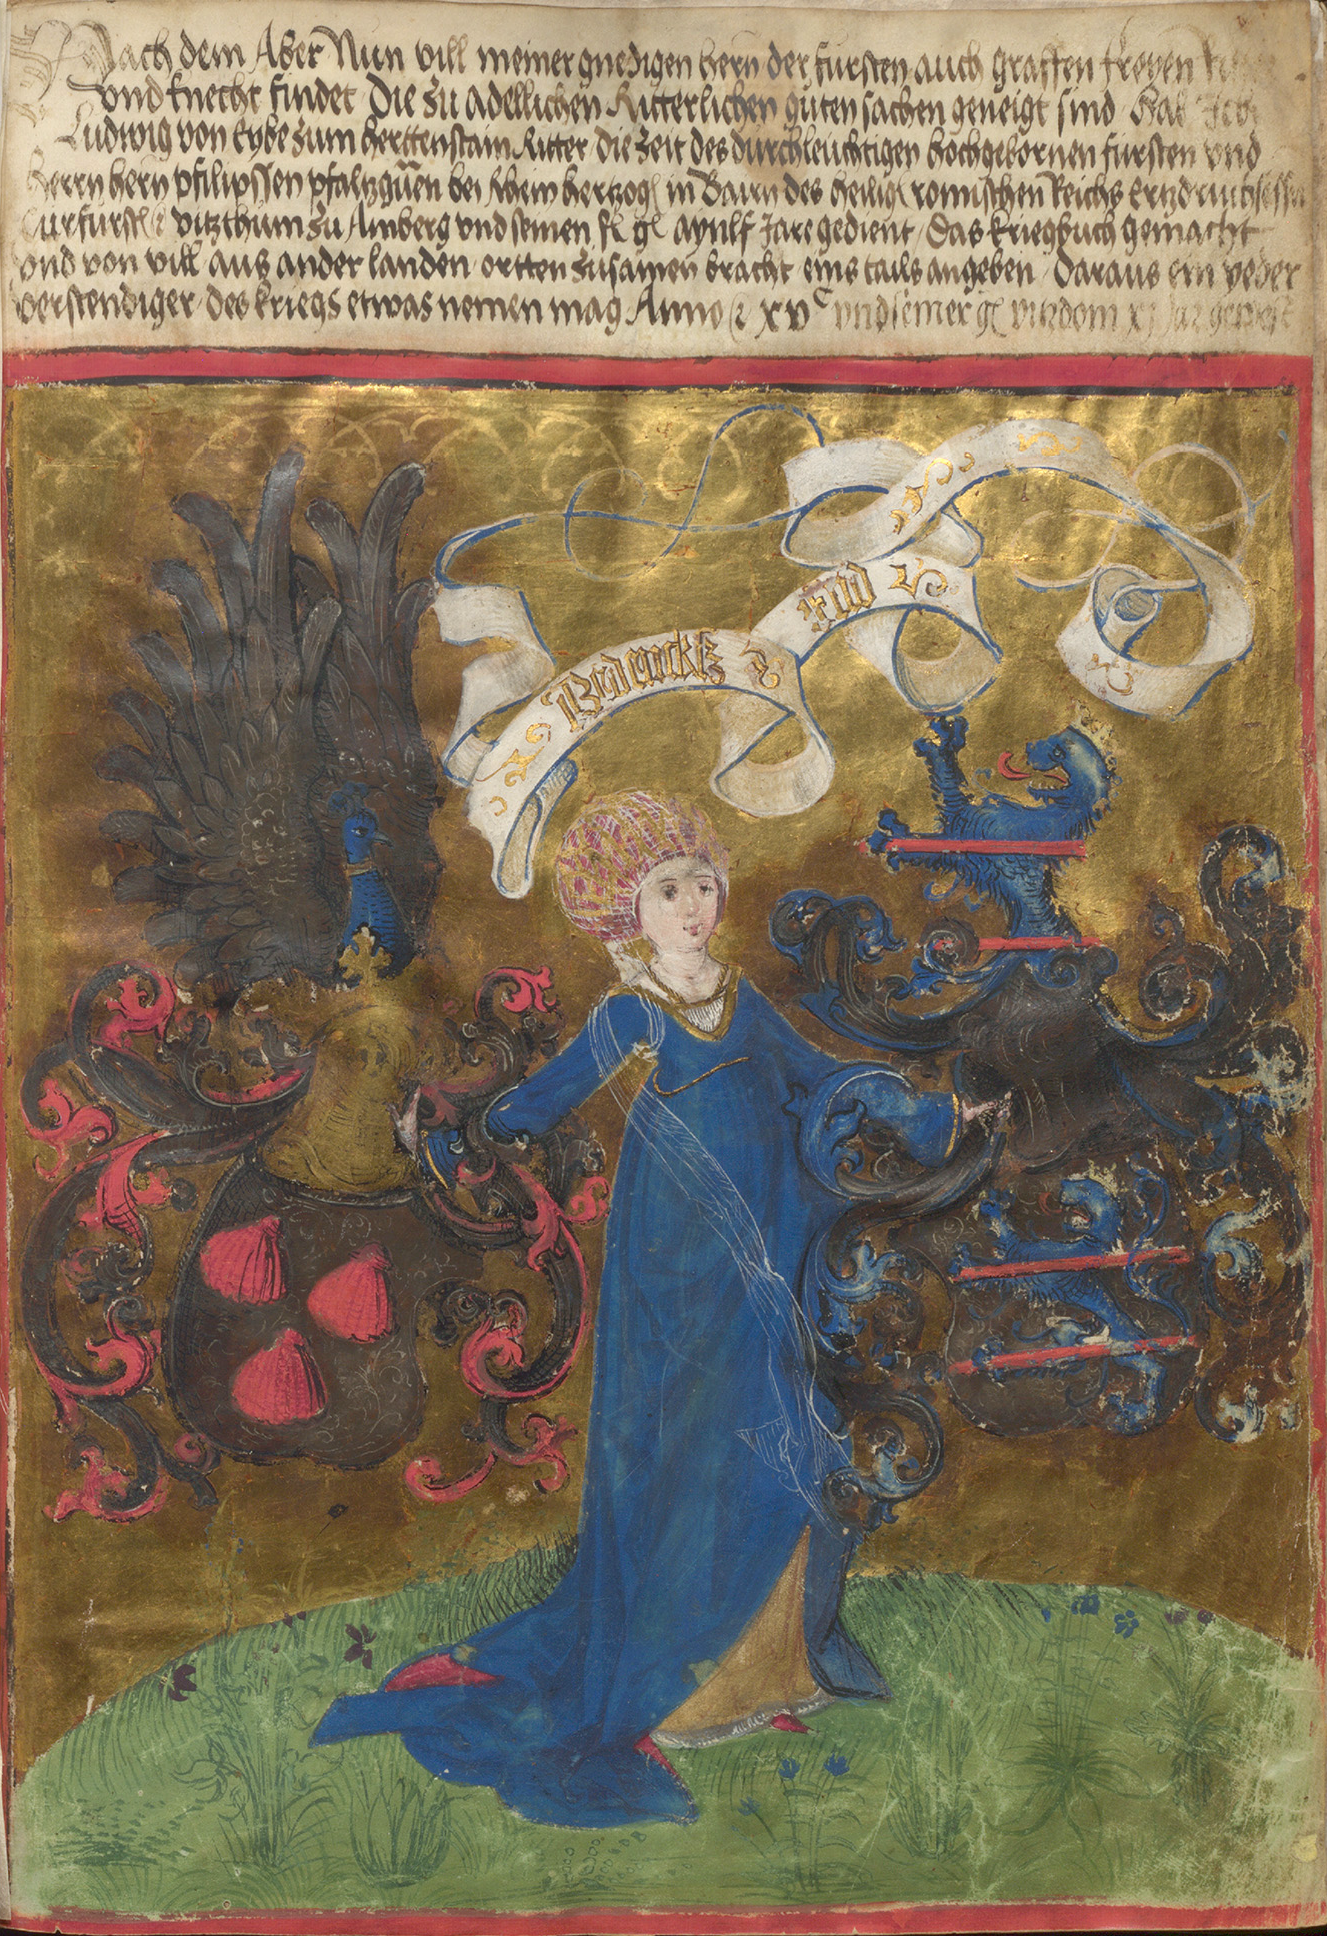 Nach dem Aber Nun vill meiner gnedigen hern der fursten auch Graffen freyen
vnd knecht findet Die zu adellichen Ritterlichen guten sachen geneigt sind Hab Ich
Ludwig von Eybe zum herttenstain Ritter die Zeit des durchleuchtigen hochgebornen fursten vnd
herrn hern pfilipssen pfaltzgrauen bei Rhein hertzog in Bairn des heilig romischen Reichs Ertzdruchsessen
Curfurst vitzthum zu Amberg vnd seinen aynlf Jare gedient Das kriegbuch gemacht
vnd von vill aus ander landen ortten zusamen bracht eins tails angeben Daraus ein yeder
verstendiger des kriegs etwas nemen mag Anno xvc vnd seiner vitzdom xj Jar